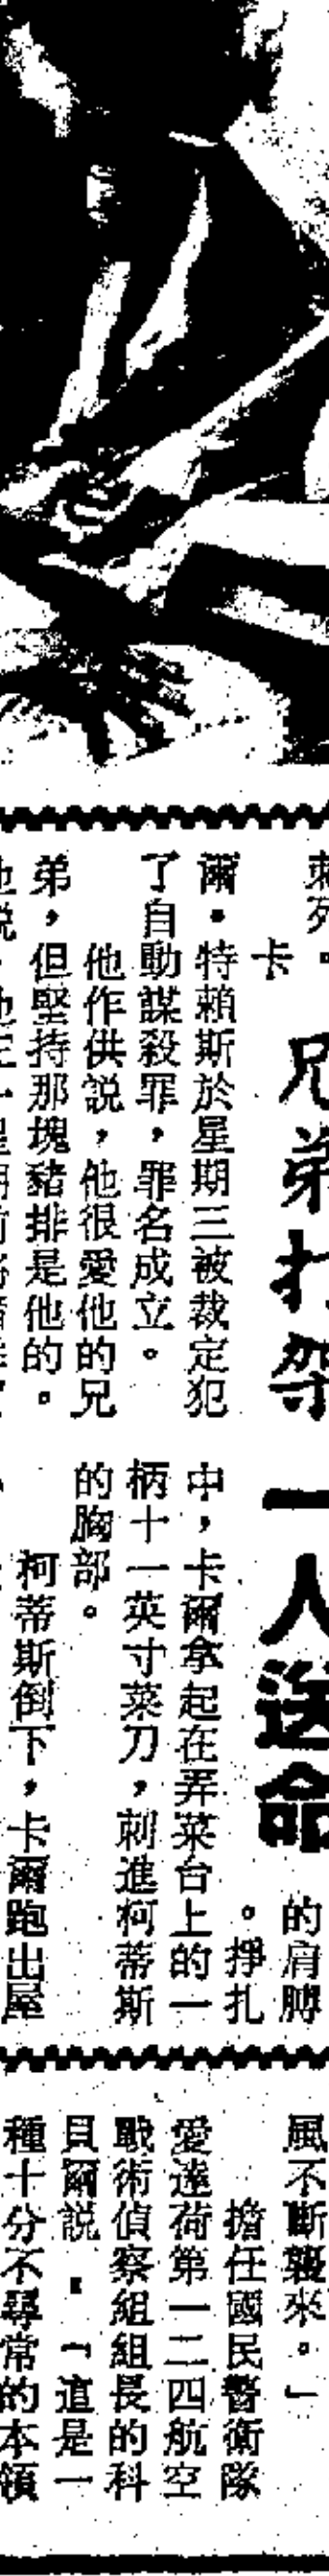 兄弟打架
一人送命
刺死。
卡
爾・特賴斯於星期三被裁定犯
了自動謀殺罪，罪名成立。
他作供説，他很愛他的兄
弟，但堅持那塊豬排是他的。
的肩膊
。掙扎
中，卡爾拿起在弄菜台上的一
柄十一英寸菜刀，刺進柯蒂斯
的胸部。
柯蒂斯倒下，卡爾跑出屋
風不斷襲來。」
擔任國民警衛隊
愛達荷第一二四航空
戰術偵察組組長的科
貝爾説：「這是一
種十分不尋常的本領